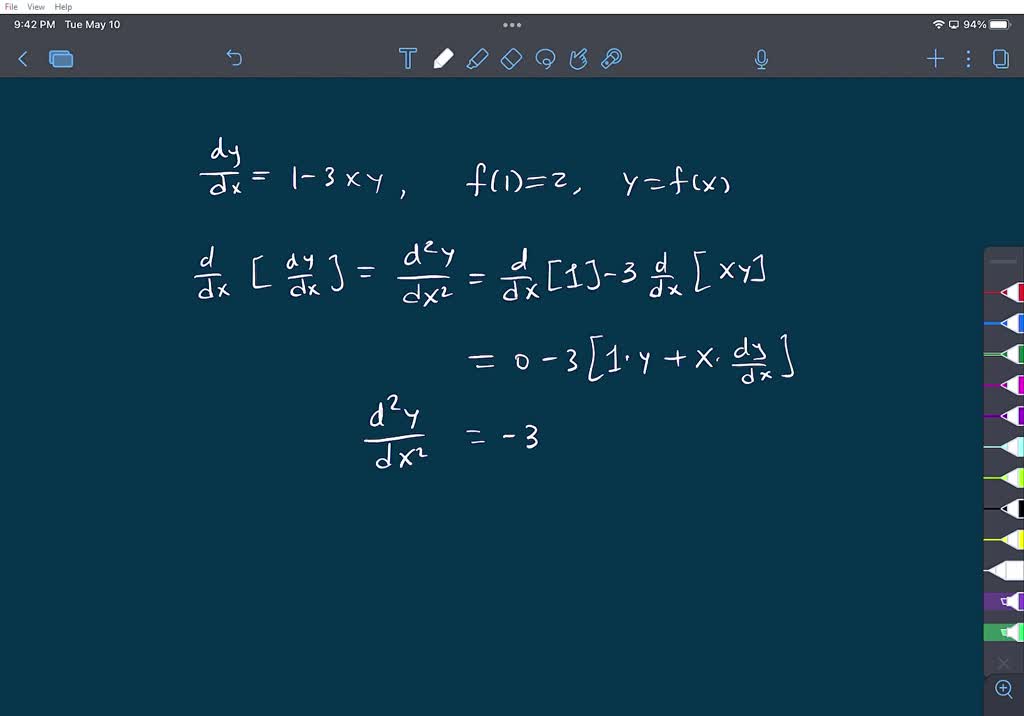 File View Help
9:42 PM Tue May 10
94%
dy/dx = 1-3xy, f(1)=2, y=f(x)
d/dx [dy/dx] = d²y/dx² = d/dx [1]-3 d/dx [xy]
= 0-3[1·y+x·dy/dx]
d²y/dx² = -3